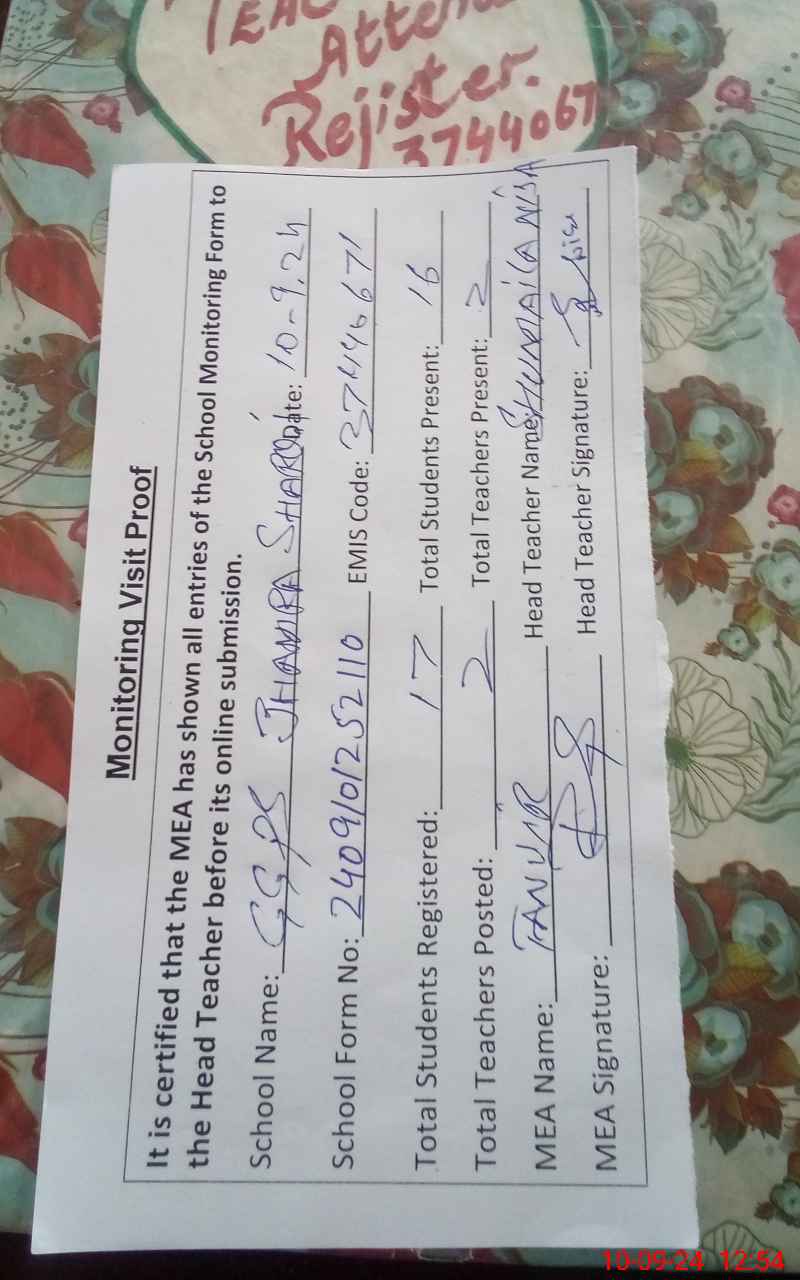 TEAC
Atten
Rejister.
3744067
Monitoring Visit Proof
It is certified that the MEA has shown all entries of the School Monitoring Form to
the Head Teacher before its online submission.
School Name: GGPS JHAMRA SHARQI Date: 10-9.24
School Form No: 2409101252110 EMIS Code: 37440671
Total Students Registered: 17 Total Students Present: 16
Total Teachers Posted: 2 Total Teachers Present: 2
MEA Name: TANVIR Head Teacher Name: HUMAILA NISA
MEA Signature: Head Teacher Signature:
10-09-24 12:54